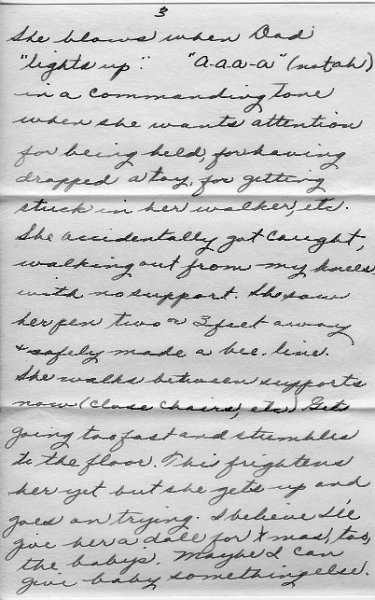 3
She blows when Dad
"lights up". "a-a-a-a" (not ah)
in a commanding tone
when she wants attention
for being held, for having
dropped a toy, for getting
stuck in her walker, etc.
She accidentally got caught,
walking out from my knees
with no support. She saw
her pen two or 3 feet away
+ safely made a bee-line.
She walks between supports
now (close chairs, etc.) Gets
going too fast and stumbles
to the floor. This frightens
her yet but she gets up and
goes on trying. I believe I'll
give her a doll for Xmas, too,
the baby's. Maybe I can
give baby something else.